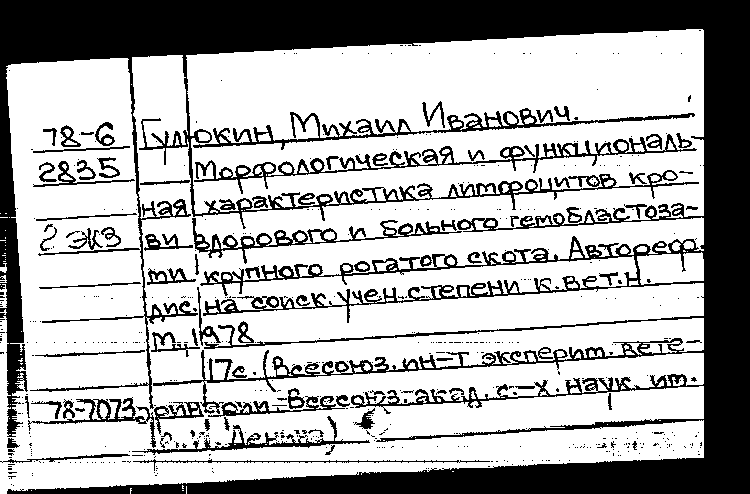 78-6 Гулюкин, Михаил Иванович.
2835 Морфологическая и функциональ-
ная характеристика лимфоцитов кро-
2 экз ви здорового и больного гемобластоза-
ми крупного рогатого скота. Автореф.
дис. на соиск. учен. степени к. вет. н.
М., 1978.
17с. (Всесоюз. ин-т эксперим. вете-
78-7073 ринарии. Всесоюз. акад. с.-х. наук. им.
В. И. Ленина)